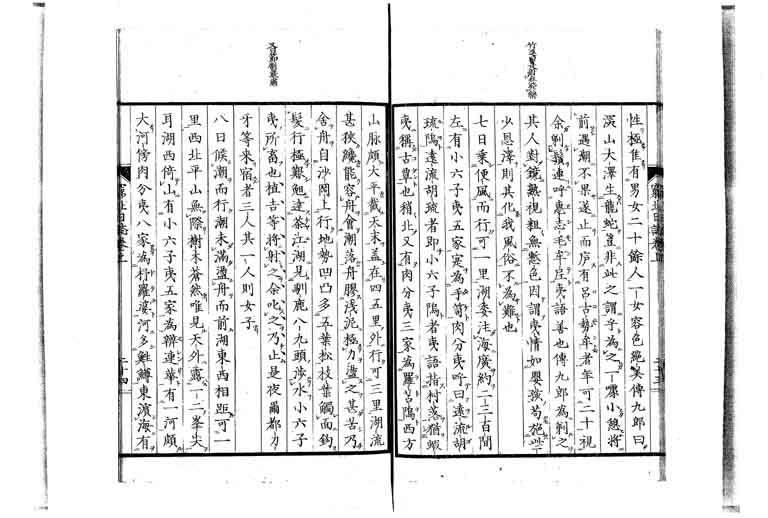 性極隹有男女二十餘人一女容色絕美傳九郎曰
深山大澤生龍蛇豈非此之謂乎為之一噱小憩將
前遇潮不果遂止而廬有呂古勢牟者年可二十視
余剃鬚連呼惠忘毛牟启夷語善也傳九郎為剃之
其人對鏡熟視粗無慙色因謂夷情如嬰孩苟施
少恩澤則其化我風俗不為難也
七日乘便風而行可一里湖委注海廣約二三百間
左有小六子夷五家寔為手
肉分夷呼曰遠流胡
琉隖遠流胡琉者即小六子隖者夷語指村落猶蝦
夷稱古草也稍北又有肉分夷三家為羅呂隖西方
山脉頗大平截天末蓋在四五里外行可三里湖流
甚狹纔能容舟會潮落舟膠淺泥極力盪之甚苦乃
舍舟自沙岡上行地勢凹凸多五葉松枝葉觸面鈎
髮行極艱勉達茶江湖見馴鹿八九頭涉水小六子
夷所畜也植吉等將射之余叱之乃止是夜爾都力
牙等來宿者三人其一人則女子
八日候潮而行潮未滿盪舟而前湖東西相距可一
里西北平山無際樹木蒼然唯見天外露一二峯尖
耳湖西倚山有小六子夷五家為聨連華有一河頗
大河傍肉分夷八家為杼羅婆河多鮏鱒東濱海有